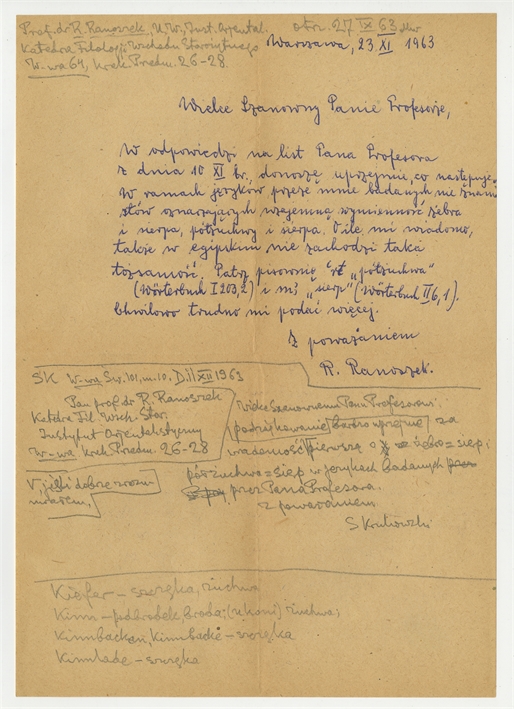 Prof. dr R. Ranoszek, U.W., Inst. Orjental.
Katedra Filologji Wschodu Starożytnego
W-wa 64, Krak. Przedm. 26-28.
otrz. 27 IX 63
Warszawa, 23. XI. 1963
Wielce Szanowny Panie Profesorze,
W odpowiedzi na list Pana Profesora
z dnia 10 XI br. donoszę uprzejmie, co następuje.
W ramach języków przeze mnie badanych nie znam
słów oznaczających wzajemną wymienność żebra
i sierpa, półżuchwy i sierpa. O ile mi wiadomo,
także w egipskim nie zachodzi taka
tożsamość. Patrz pisownię "półżuchwa"
(Wörterbuch I 203,2) i "sierp" (Wörterbuch II 6,1).
Chwilowo trudno mi podać więcej.
Z poważaniem
R. Ranoszek.
SK W-wa Św. 101, m. 10. D. 1 XII 1963
Pan prof. dr R. Ranoszek
Katedra Fil. Wsch. Star.
Instytut Orjentalistyczny
W-wa Krak. Przedm. 26-28
V, jeśli dobrze zrozu-
miałem,
Wielce Szanownemu Panu Profesorowi
podziękowanie bardzo uprzejme za
wiadomość pierwszą o żebro = sierp;
półżuchwa = sierp w językach badanych
przez Pana Profesora.
Z poważaniem
S Krukowski
Kiefar – szczęka, żuchwa
Kinn – podbródek, broda; (rekoni) żuchwa;
Kinnbacken, Kinnbacke – szczęka
Kinnlade – szczęka